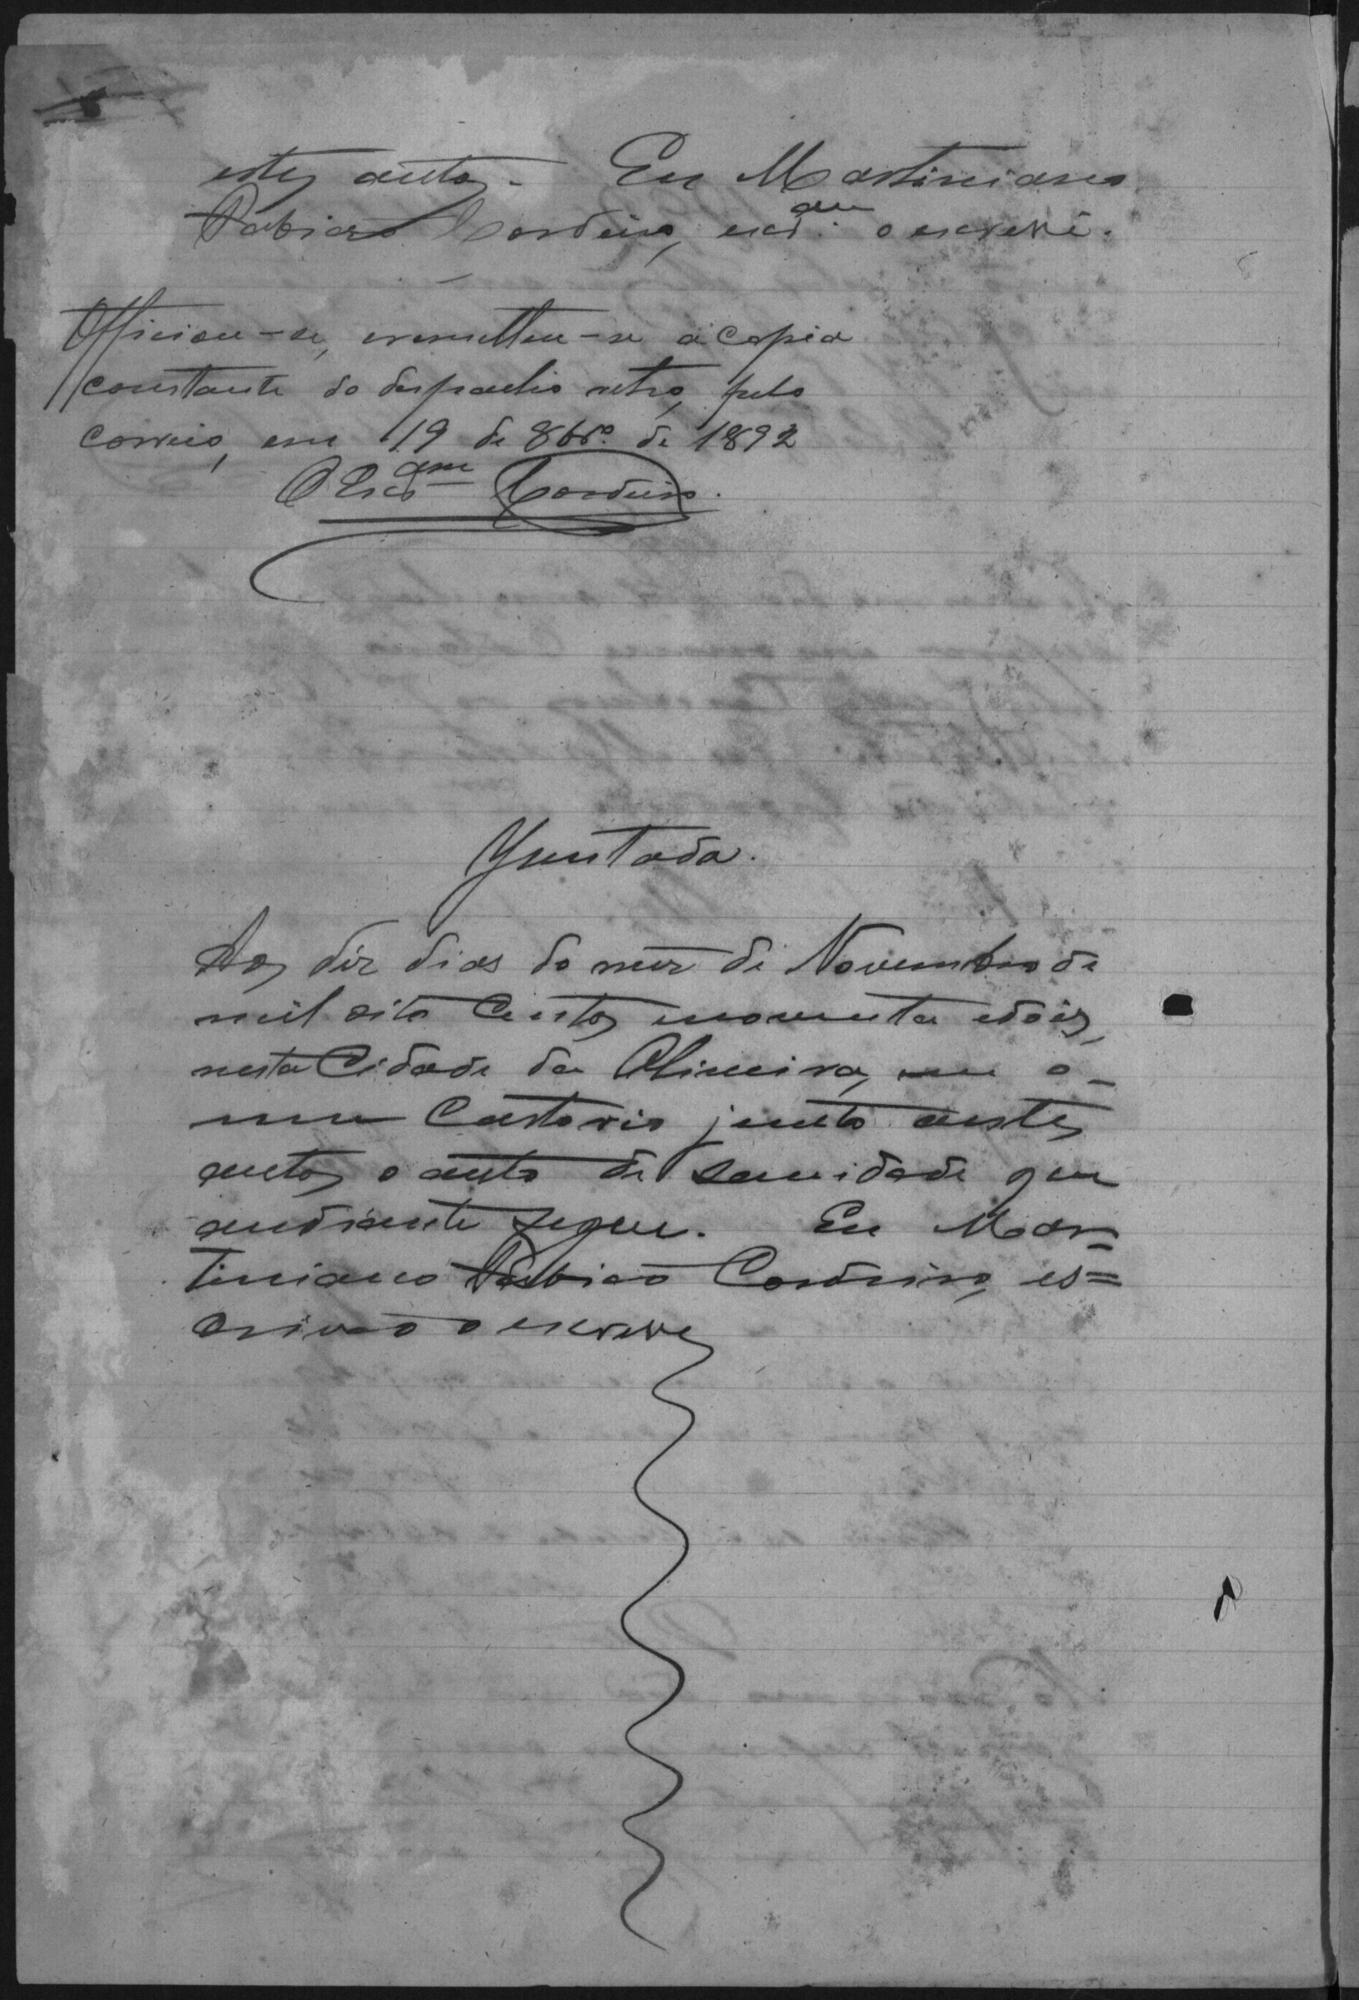 estes autos. Eu Martiniano
Fabiano Cordeiro, escr.am o escrevi.
Officiou-se, e remetteu-se a copia
constante do despacho retro, pelo
correio, em 19 de 8bro. de 1892
O Escam Cordeiro.
Juntada.
Aos dez dias do mez de Novembro de
mil oito centos e noventa e dois,
nesta Cidade da Olimeira, em o
meu Cartorio junto a estes
autos o auto de sanidade que
adiante segue. Eu Mar=
tiniano Fabiano Cordeiro, es=
crivão o escrevi